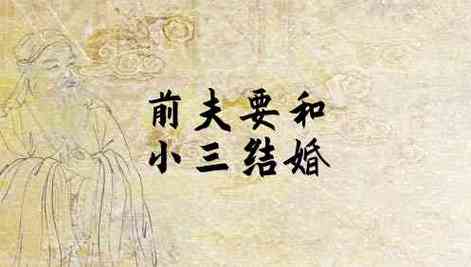 前夫要和
小三结婚